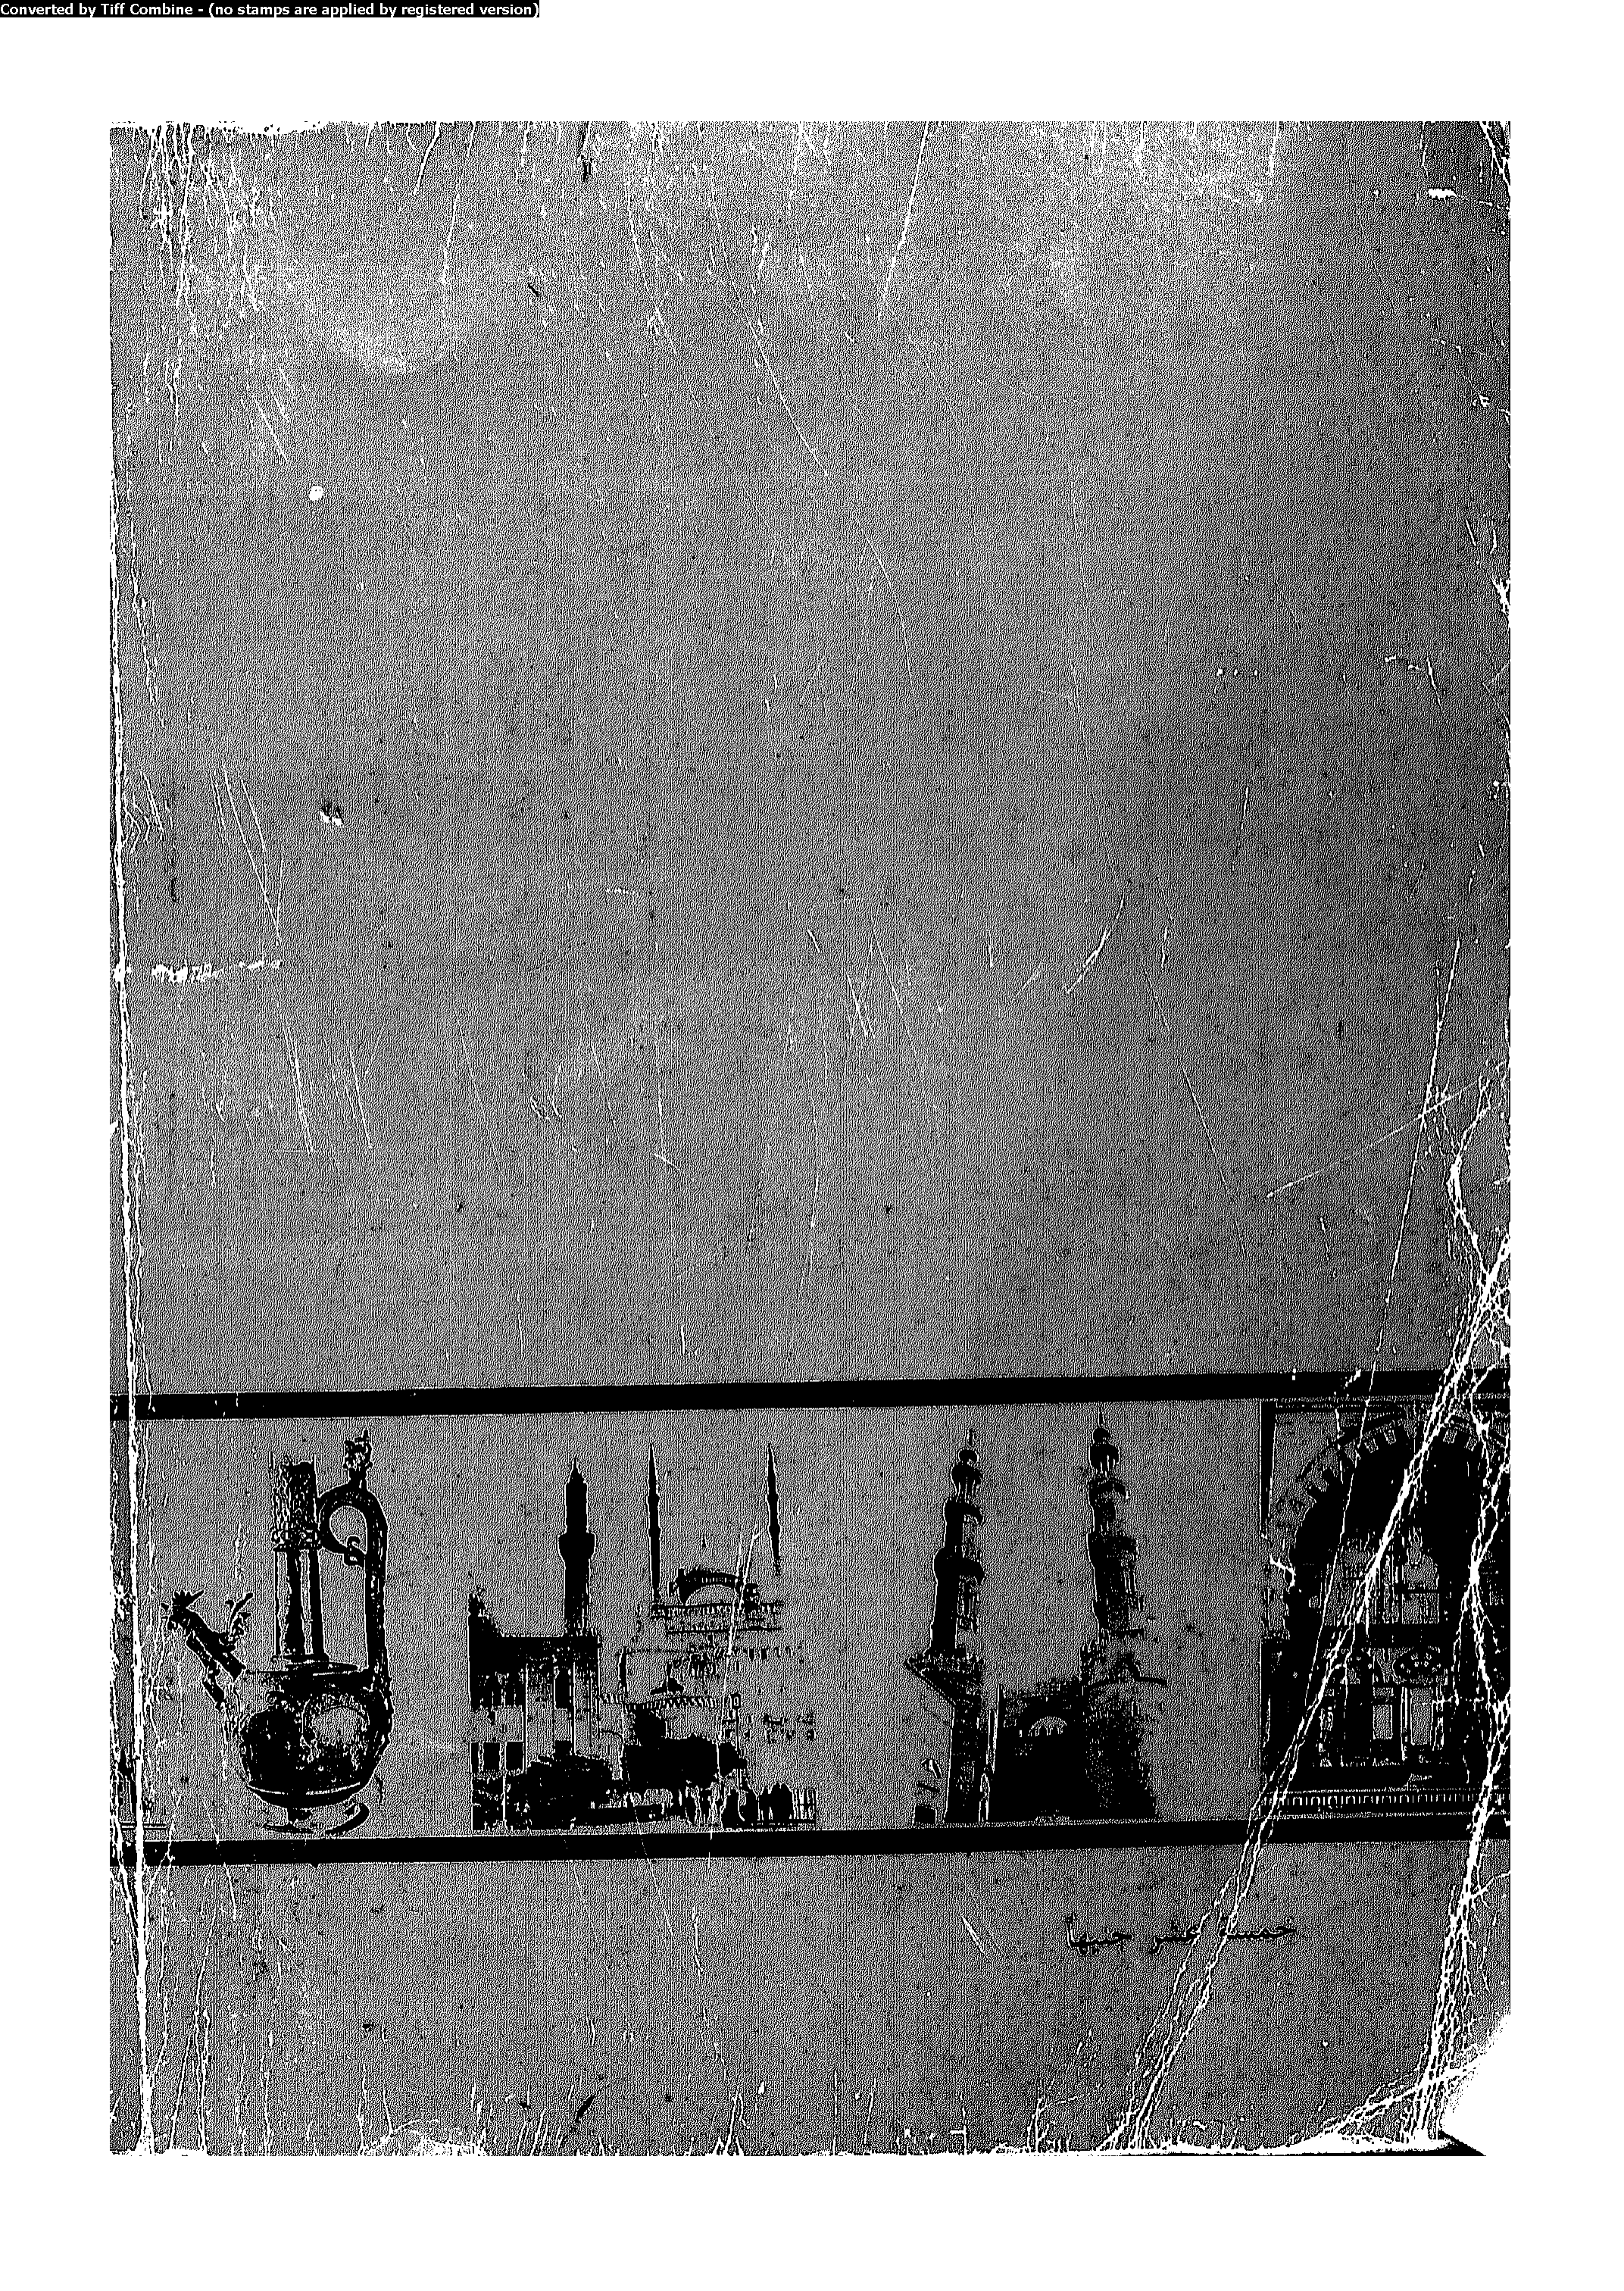 Converted by Tiff Combine - (no stamps are applied by registered version)
خمسة عشر جنيهاً